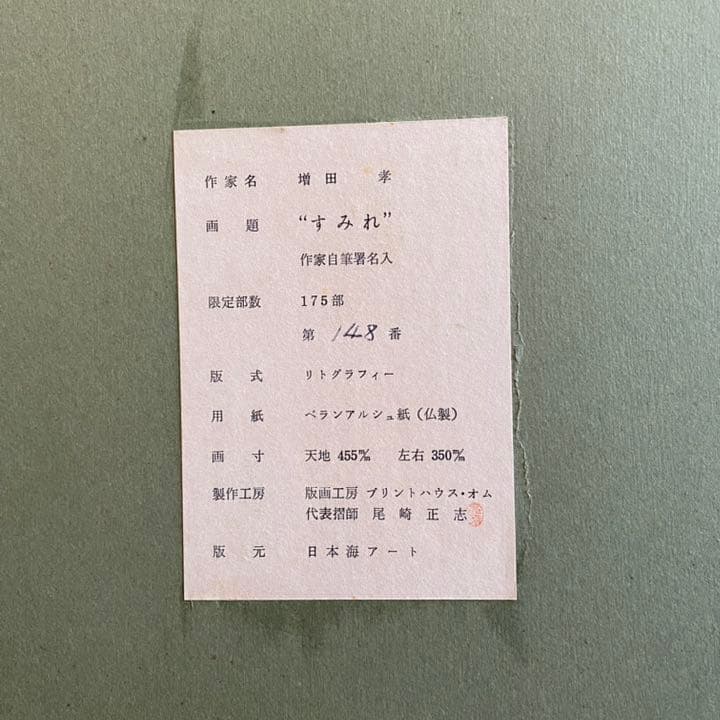 作家名 増田 孝
画題 “すみれ”
作家自筆署名入
限定部数 175部
第 148 番
版式 リトグラフィー
用紙 ベランアルシュ紙(仏製)
画寸 天地 455㎜ 左右 350㎜
製作工房 版画工房 プリントハウス・オム
代表摺師 尾崎正志
版元 日本海アート